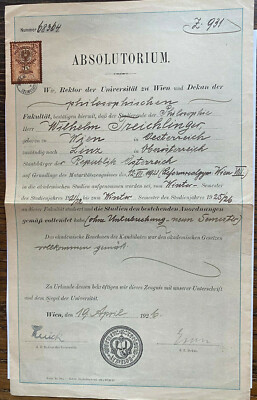 Nummer 68304
Z. 931
ABSOLUTORIUM.
Wir, Rektor der Universität zu Wien und Dekan der
philosophischen
Fakultät, bestätigen hiermit, daß der Studierende der Philosophie
Herr Wilhelm Treichlinger
geboren zu Wien in Oesterreich
zuständig nach Linz in Oberösterreich
Staatsbürger der Republik Österreich
auf Grundlage des Maturitätszeugnisses
in das akademische Studium aufgenommen worden sei, vom Winter-Semester
des Studienjahres bis zum Winter-Semester des Studienjahres 1925/26
an dieser Fakultät studiert und die Studien den bestehenden Anordnungen
gemäß vollendet habe (ohne Unterbrechung Semester)
Das akademische Benehmen des Kandidaten war den akademischen Gesetzen
vollkommen gemäß
Zu Urkunde dessen bekräftigen wir dieses Zeugnis mit unserer Unterschrift und
dem Siegel der Universität.
Wien, den 19 April 1926